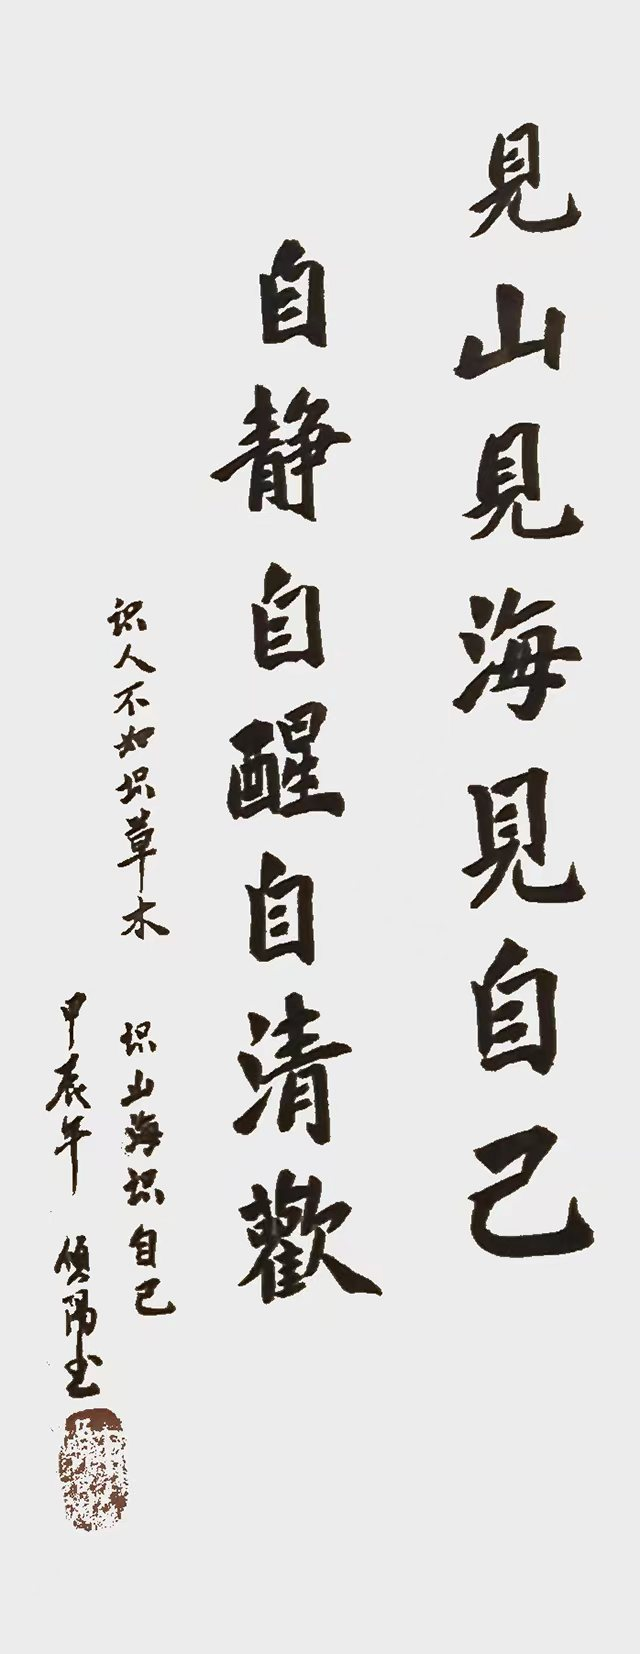 見山見海見自己
自静自醒自清歡
识人不如识草木
识山海识自己
甲辰年 傾陽书